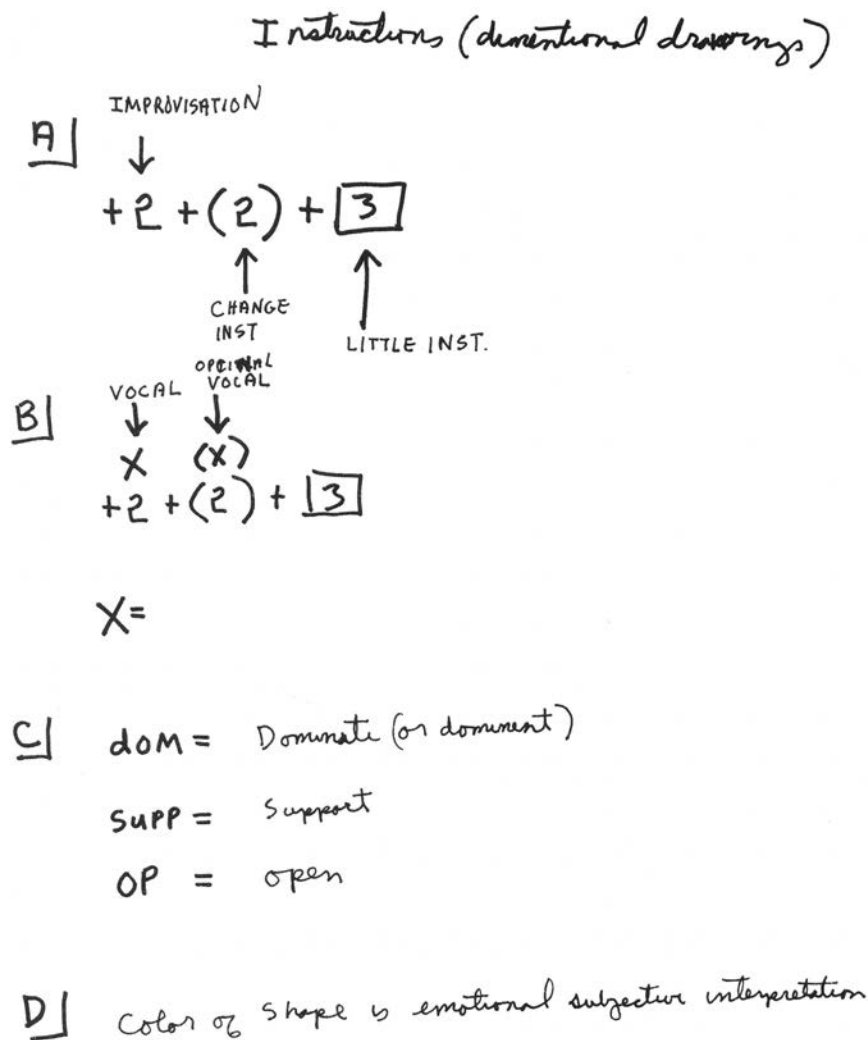 Instructions (dimentional drawings)
A
IMPROVISATION
+2 + (2) + 3
CHANGE
INST
LITTLE INST.
B
VOCAL
OPTIONAL
VOCAL
X (X)
+2 + (2) + 3
X=
C dOM = Dominate (or dominent)
SUPP = Support
OP = open
D Color of Shape is emotional subjective interpretation